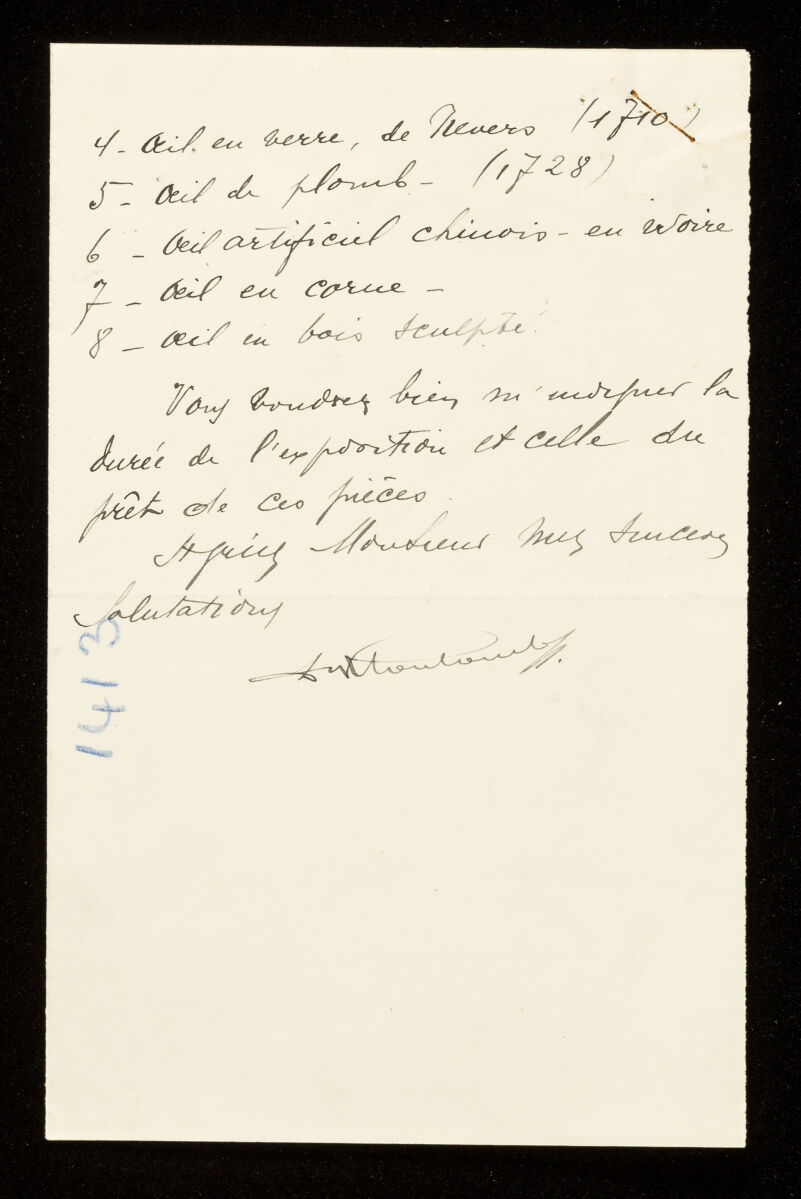 4- Œil en verre, de Nevers (1710)
5- Œil de plomb - (1728)
6 - Œil artificiel chinois - en ivoire
7 - Œil en corne -
8 - Œil en bois sculpté.
Vous voudrez bien m'indiquer la
durée de l'exposition et celle du
prêt de ces pièces.
Agréez Monsieur mes sincères
Salutations
1413